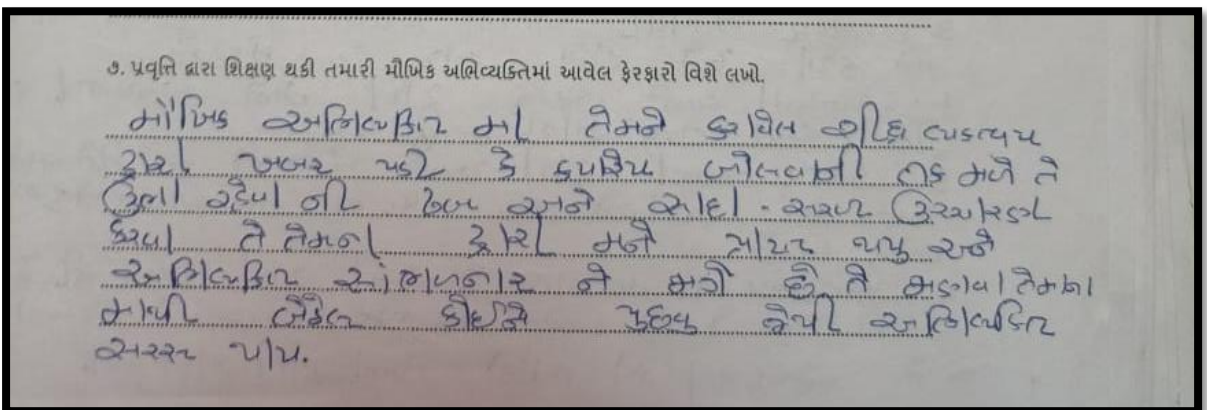 ૭. પ્રવૃત્તિ દ્વારા શિક્ષણ થકી તમારી મૌખિક અભિવ્યક્તિમાં આવેલ ફેરફારો વિશે લખો.
મૌખિક અભિવ્યકિત માં તેમને કરાવેલ
દ્વારા ખબર પડી કે કયારેય બોલવાની તક મળે તે
ઉભા રહેવા ની ઢબ અને સાદા - સરળ
કરવા તે તેમના દ્વારા મને થયુ અને
અભિવ્યકિત સાંભળનાર ને છે તે તેમાના
માથી કોઈને પુછવુ જેથી અભિવ્યકિત
સરસ થાય.